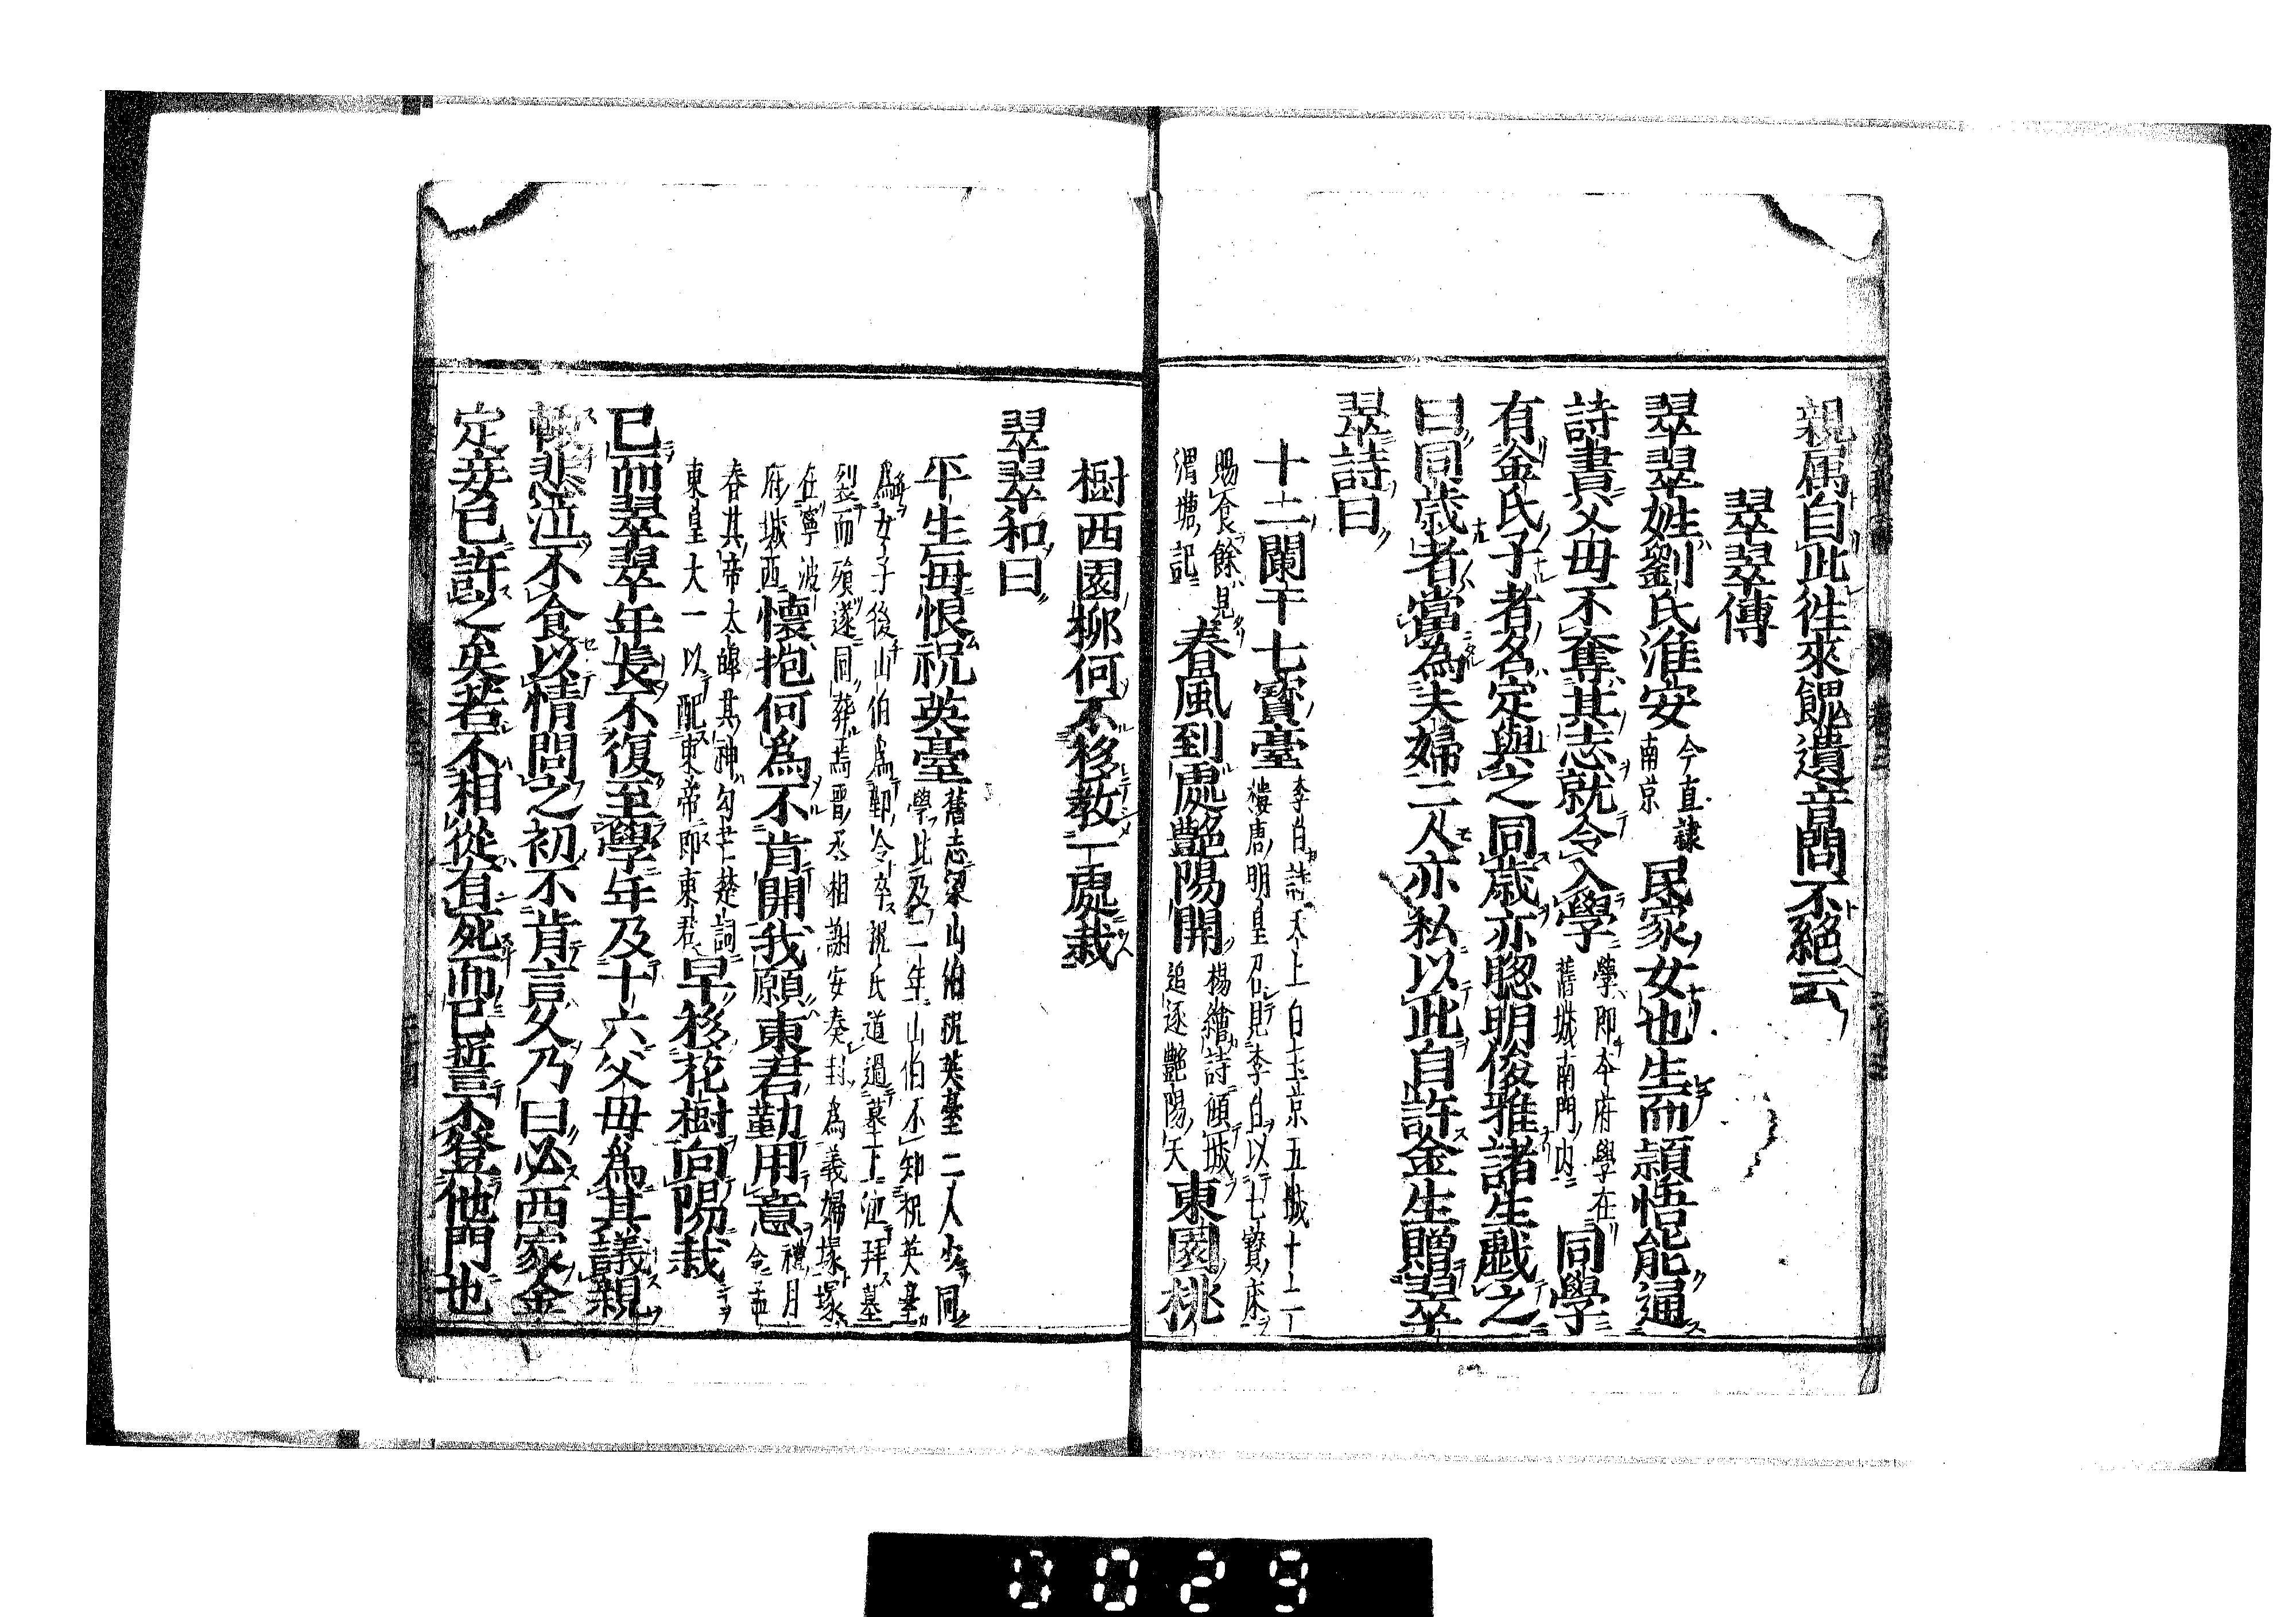 親属自此徃來餽遺音問不絕云
翠翠傳
翠翠姓劉氏淮安今直隷南京民家女也生而頴悟能通
詩書父母不奪其志就令入學學即今府學在舊城南門内同學
有金氏子者名定與之同歳亦聰明俊雅諸生戯之
曰同歳者當為夫婦二人亦私以此自許金生贈翠
翠詩曰
十二闌干七寳臺李白詩天上白玉京五城十二樓唐明皇召見李白以七寳床
賜食餘見渭塘記春風到處艶陽開楊繪詩傾城追逐艶陽天東園桃
樹西園柳何不移教一處栽
翠翠和曰
平生每恨祝英臺舊志梁山伯祝英臺二人少同學比及二年山伯不知祝英臺
為女子後山伯為鄞令卒祝氏道過墓下泣拜墓裂而殞遂同葬焉晋丞相謝安奏封為義婦塚塚
在寧波府城西懐抱何為不肯開我願東君勤用意禮月令孟
春其帝太皥其神勾芒楚詞東皇太一以配東帝即東君早移花樹向陽栽
已而翠翠年長不復至學年及十六父母為其議親
輙悲泣不食以情問之初不肯言久乃曰必西家金
定妾已許之矣若不相從有死而已誓不登他門也
0029